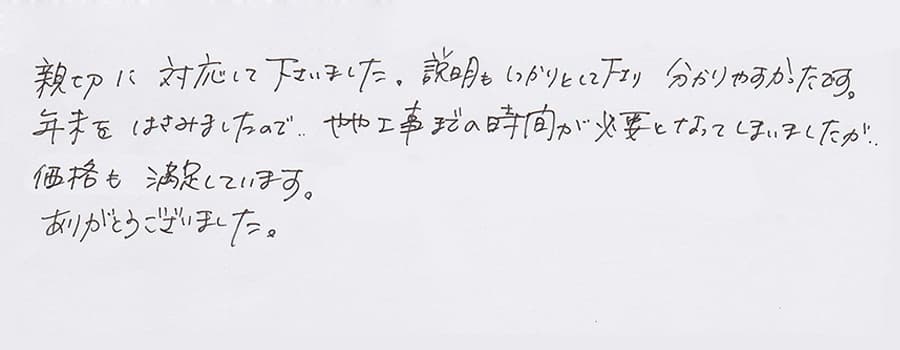 親切に対応して下さいました。説明もしっかりとして下さり 分かりやすかったです。
年末をはさみましたので‥やや工事までの時間が必要となってしまいましたが‥
価格も満足しています。
ありがとうございました。